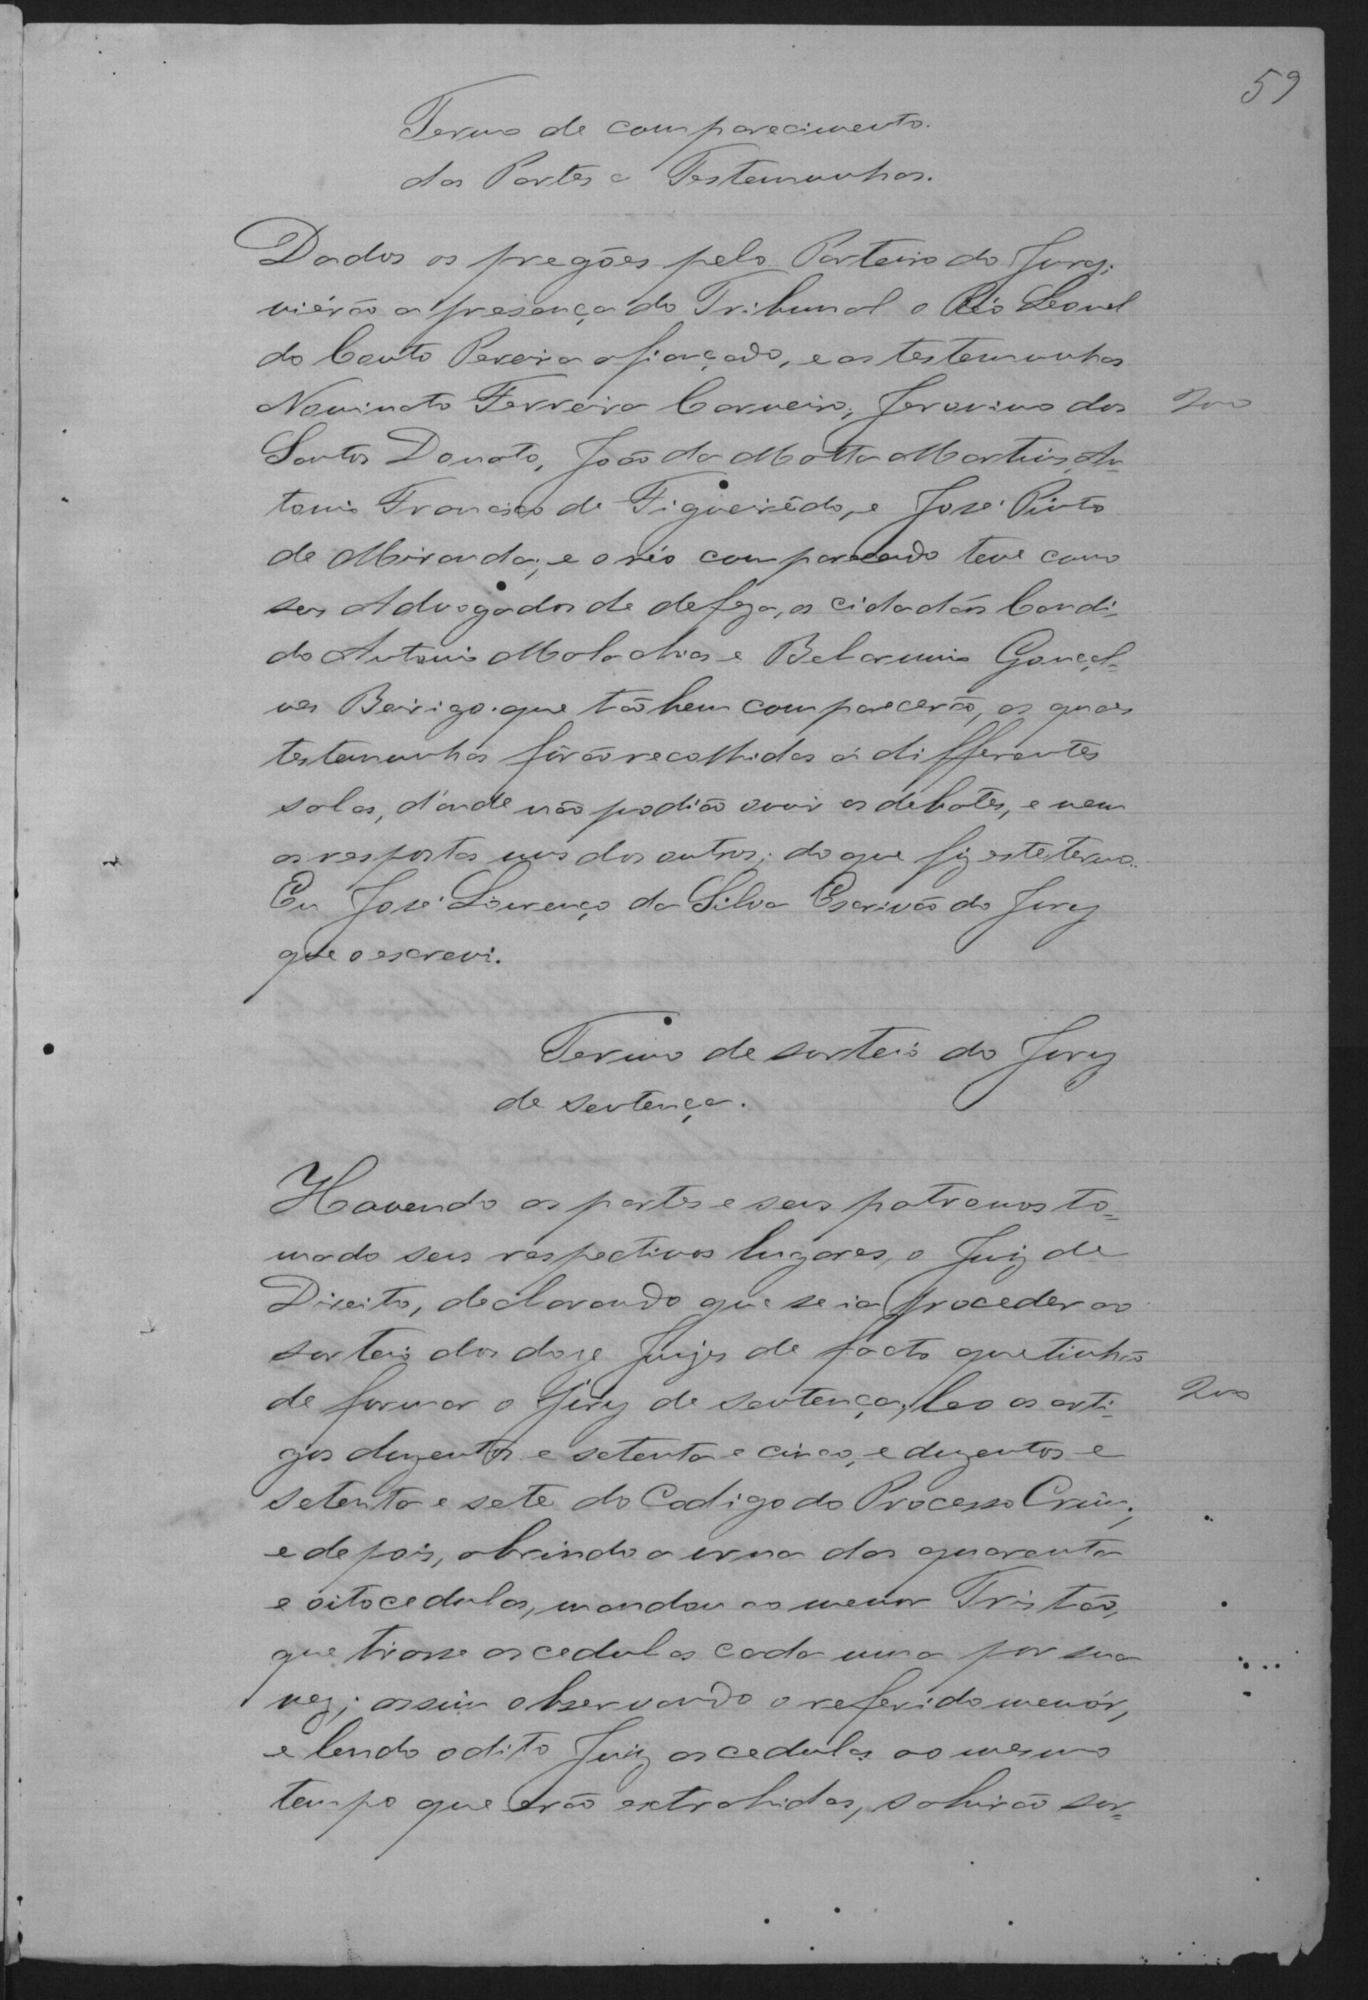 59
Termo de comparecimento.
das Partes e Testemunhas.
Dados os pregões pelo Porteiro do Jury,
viérão a presença do Tribunal o Réo Leonel
do Couto Pereira afiançado, e as testemunhas
Ferreira Carneiro, Jeronimo dos
200
Santos Donato, João da Motta Martins, An-
tonio Francisco de Figueirêdo, e José Pinto
de Miranda; e o réo comparecendo teve como
seus Advogados de defeza, os cidadãos Candi-
do Antonio Malachias e Belarmino Gonçal-
ves que tãobem comparecerão, as quaes
testemunhas fôrão recolhidas á differentes
salas, d'onde não podião ouvir os debates, e nem
as respostas uns dos outros; do que fiz este termo.
Eu José Lourenço da Silva Escrivão do Jury
que o escrevi.
Termo de sorteio do Jury
de sentença.
Havendo as partes e seus patronos to-
mado seus respectivos lugares, o Juiz de
Direito, declarando que se ia proceder ao
sorteio dos doze Juizes de facto que tinhão
de formar o jury de sentença, leo os arti-
200
gos duzentos e setenta e cinco, e duzentos e
setenta e sete do Codigo do Processo Crim;
e depois, abrindo a urna das quarenta
e oito cedulas, mandou ao menor Tristão,
que tirasse as cedulas cada uma por sua
vez; assim observando o referido menór,
e lendo o dito Juiz as cedulas ao mesmo
tempo que erão extrahidas, sahirão sor-